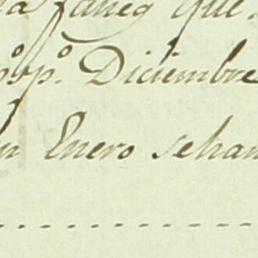 a faneg que
pº pº. Diciembre
n Enero sehan